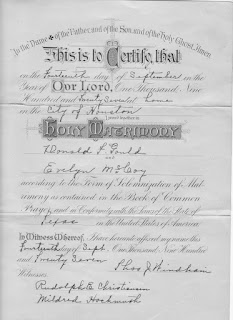 In the Name of the Father, and of the Son, and of the Holy Ghost, Amen
This is to Certify, that
on the Fourteenth day of September in the
Year of Our Lord, One Thousand, Nine
Hundred and Twenty Seven
in the City of Houston
Holy Matrimony
Donald F. Gould
and
Evelyn McCoy
according to the Form of Solemnization of Mat-
rimony as contained in the Book of Common
Prayer, and in Conformity with the laws of the State of
Texas in the United States of America
In Witness Whereof, I have hereunto affixed my name this
Fourteenth day of Sept. One Thousand, Nine Hundred
and Twenty Seven
Windham
Witnesses
Rudolph E. Christensen
Mildred